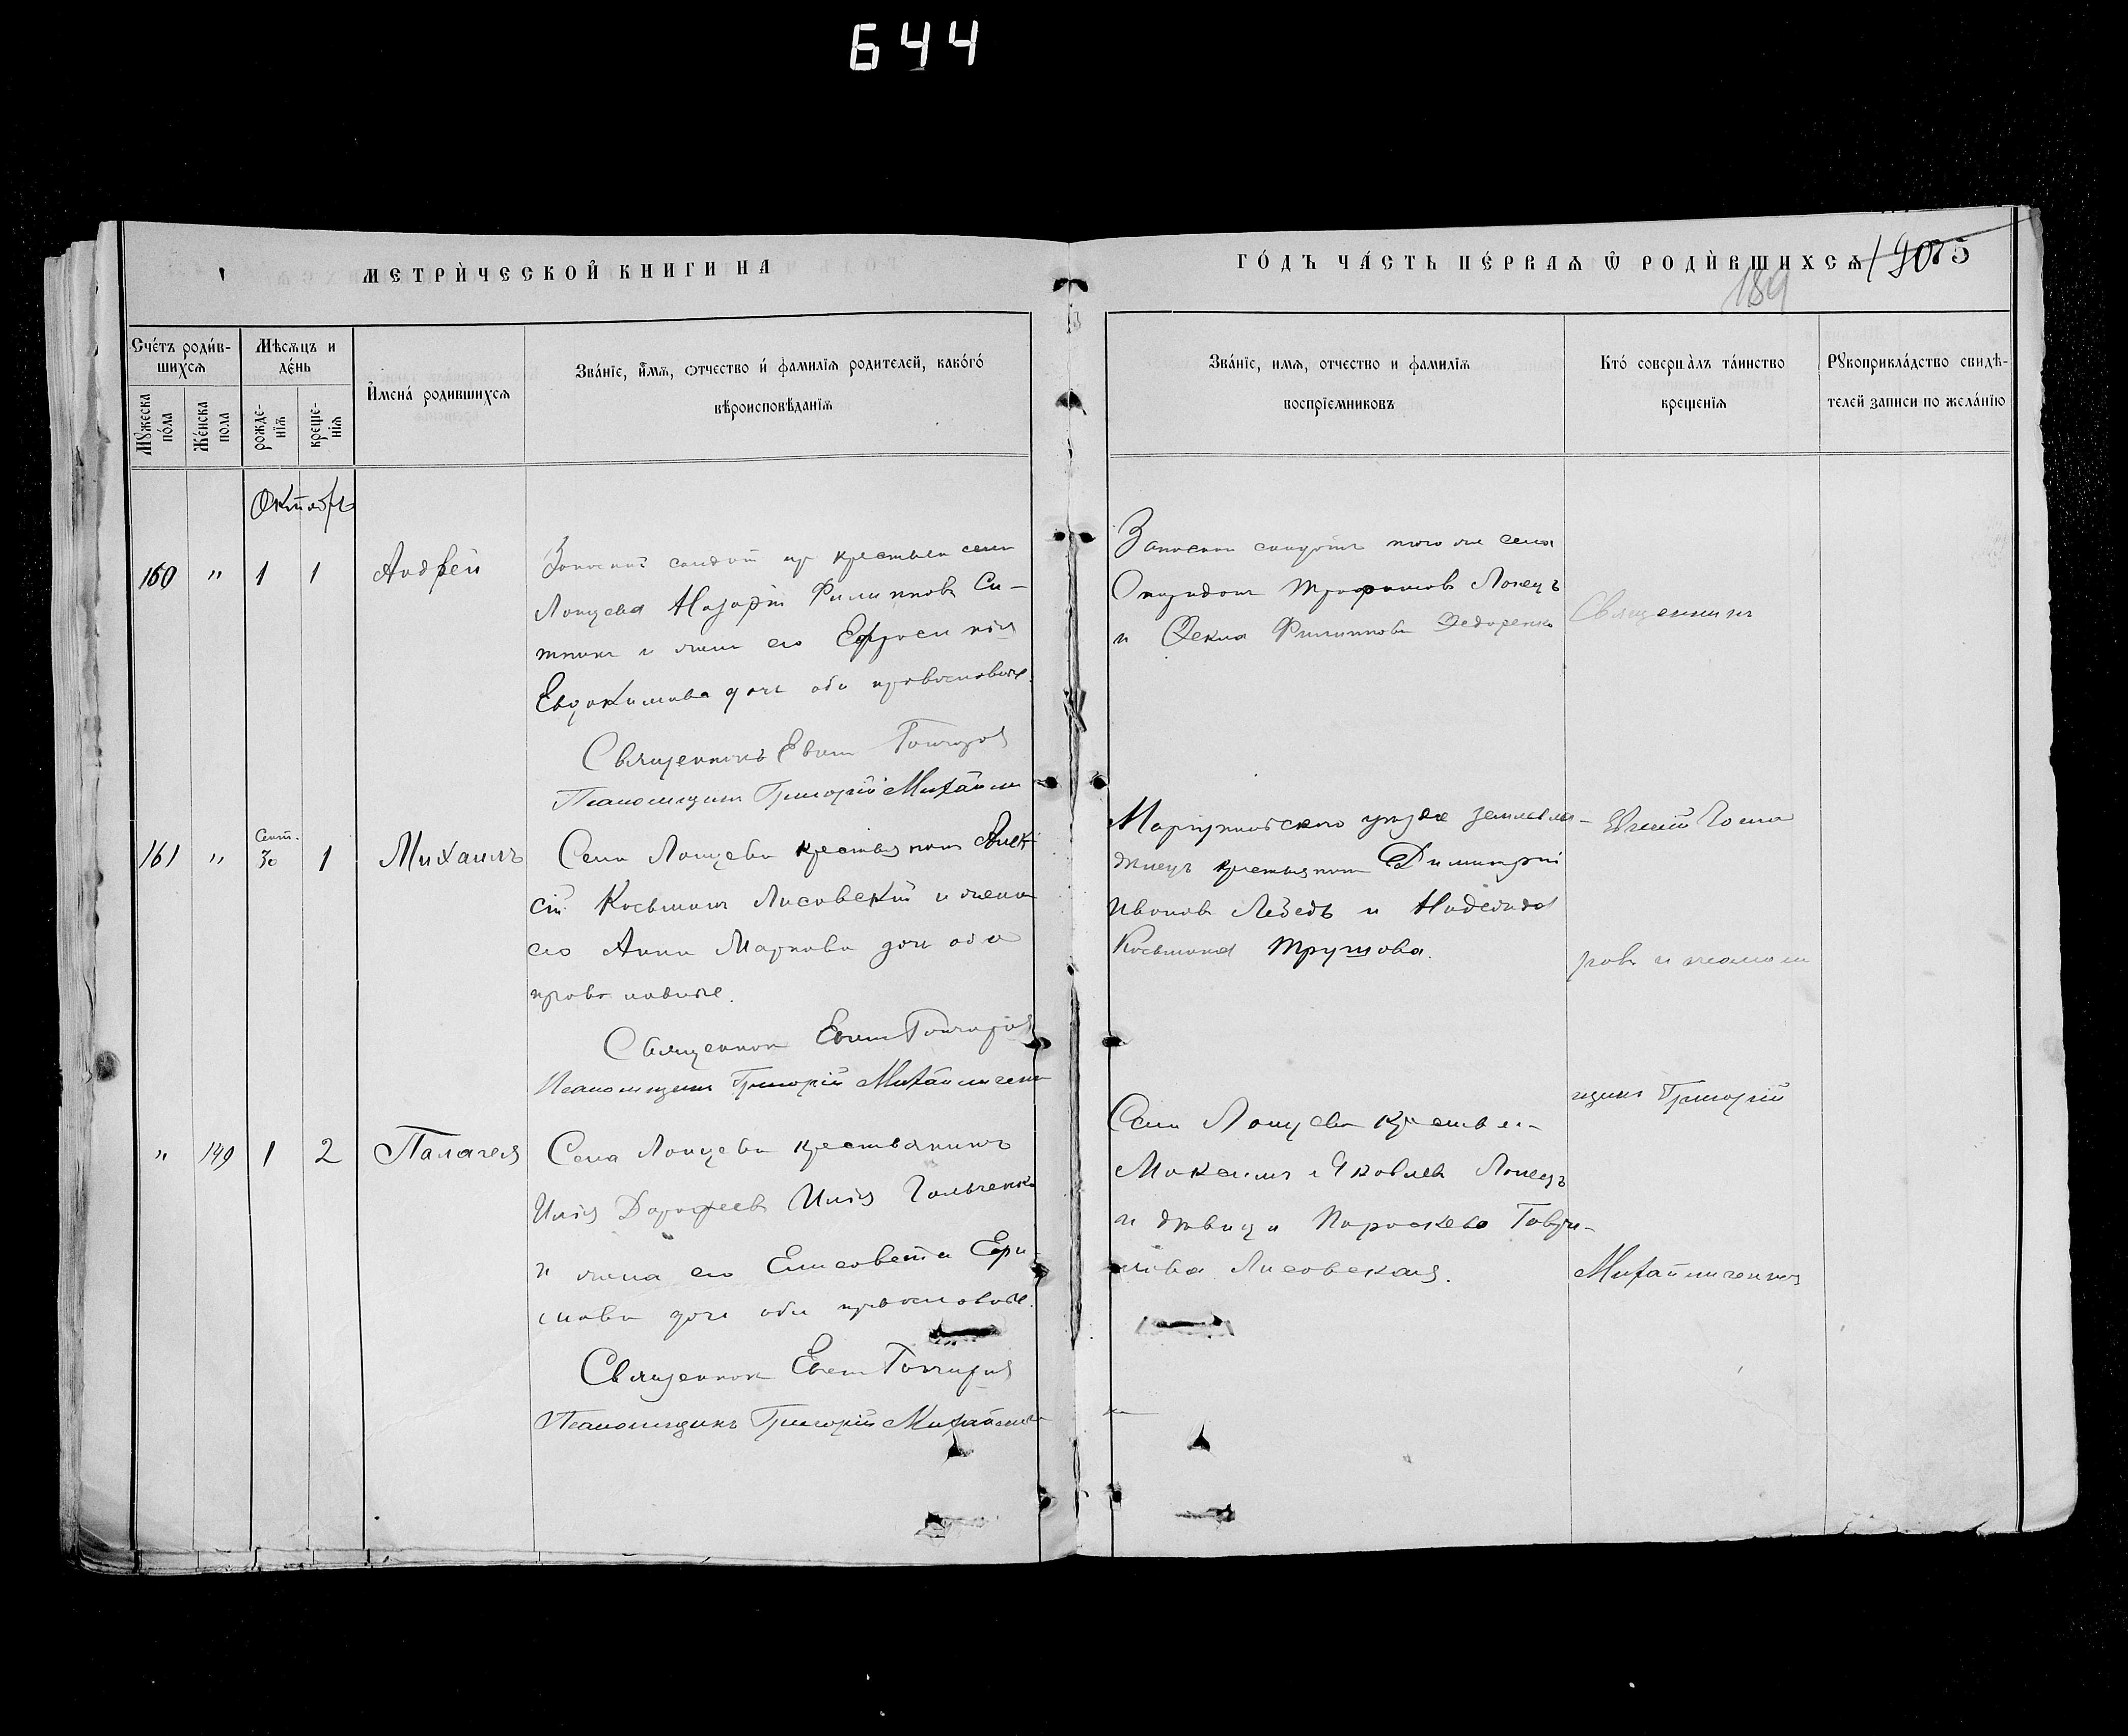 644
МЕТРИЧЕСКОЙ КНИГИ НА
ГОДЪ ЧАСТЬ ПЕРВАЯ Ѿ РОДИВШИХСЯ
189
Счетъ родив-
шихся
Мужеска
пола
Женска
пола
Мѣсяцъ и
день
рожде-
нія
креще-
нія
Имена родившихся
Званіе, имя, отчество и фамилія родителей, какого
вѣроисповѣданія
Званіе, имя, отчество и фамилія
воспріемниковъ
Кто совершалъ таинство
крещенія
Рукоприкладство свидѣ-
телей записи по желанію
Октябрь
160 " 1 1 Андрей
Запасной солдат из крестьян села
Лопцева Назарій Филиппов Си-
тник и жена его Ефросинія
Евдокимова дочь оба православные.
Священникъ Евген Гончаров
Псаломщикъ Григорій Михайли
Запасной солдатъ того же села
Трофимовъ Лопецъ
и Ѳекла Филиппова Федоренко
Священникъ
161 " Сент. 30 1 Михаилъ
Села Лопцева крестьянин Алек-
сій Косьмин Лисовскій и жена
его Анна Маркова дочь оба
православные.
Священник Евген Гончаров
Псаломщикъ Григорій Михайличенко
Маріупольского уѣзда землевла-
дѣлецъ крестьянин Димитрій
Иванов Лебедь и Надежда
Косьмина Трушова.
Евгеній Гонча
ров и псаломщ
" 149 1 2 Палагея
Села Лопцева крестьянинъ
Илія Дорофеевъ Илія Гольченко
и жена его Елисавета
дочь оба православные.
Священник Евген Гончаров
Псаломщикъ Григорій Михайличен
Села Лопцева крестьян-
Максимъ Яковлев Лопецъ
и дѣвица Параскева Гаври-
лова Лисовская.
щикъ Григорій
Михайличенко